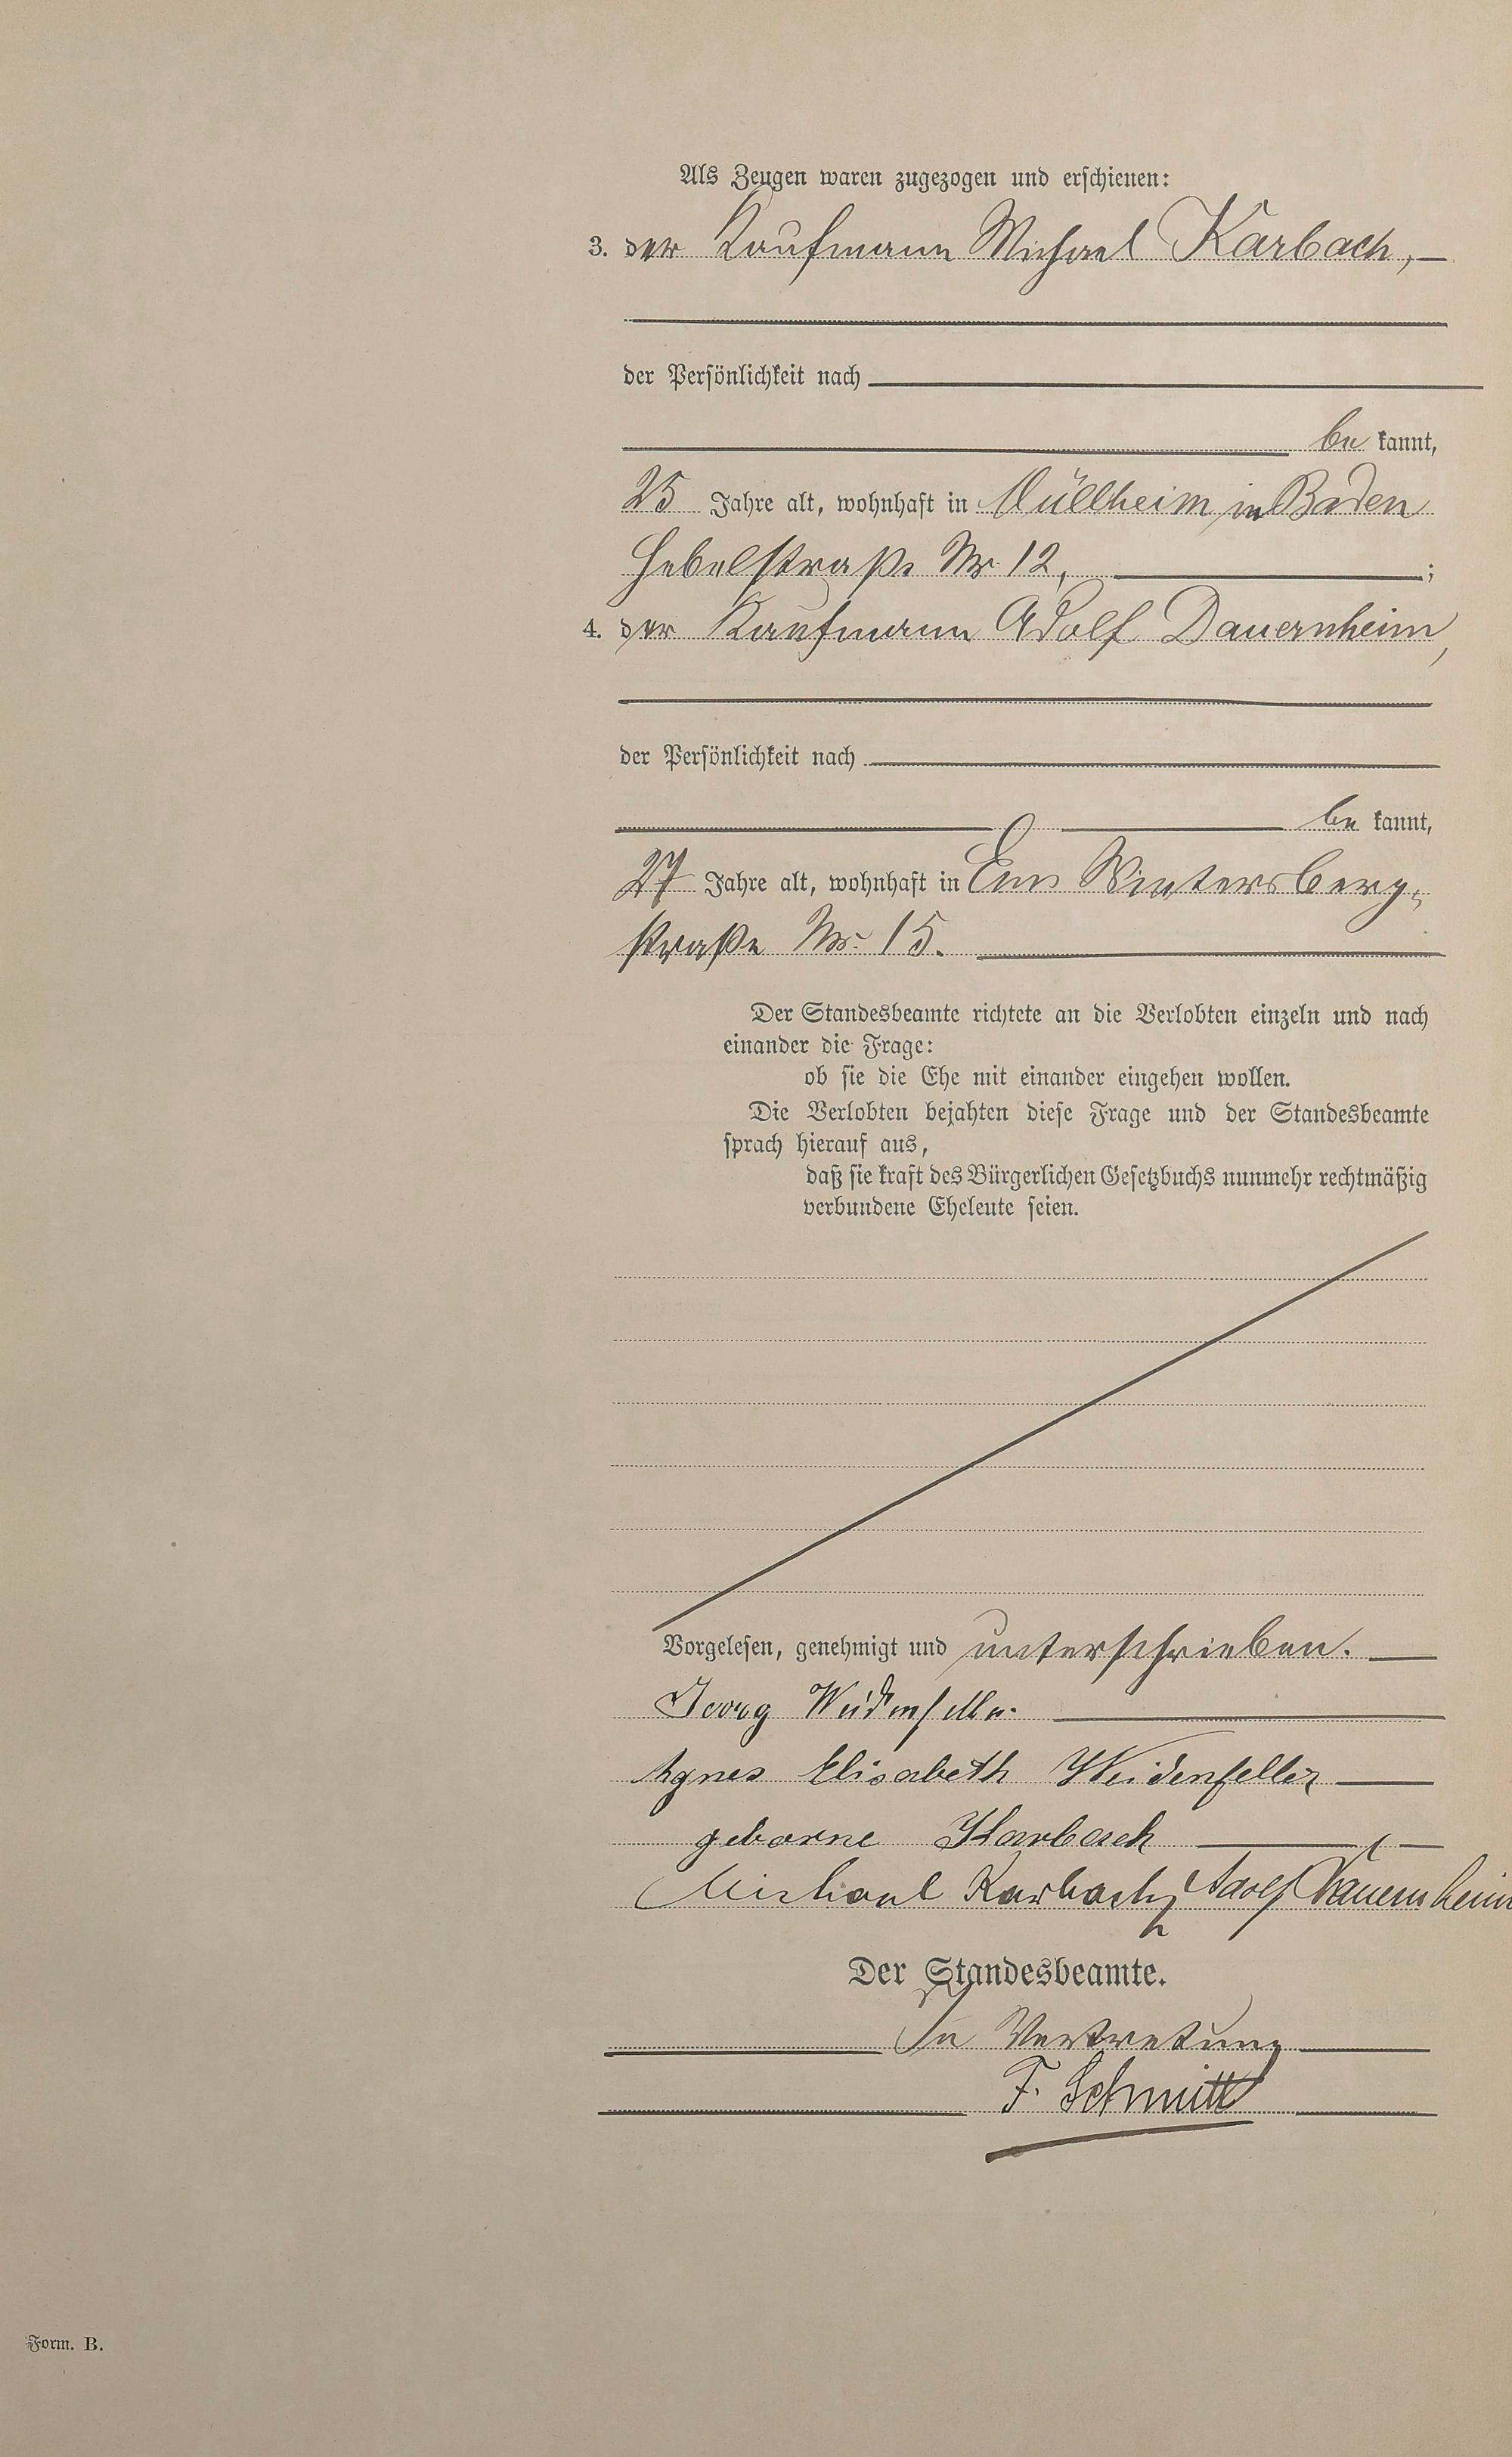 Als Zeugen waren zugezogen und erschienen:
3. der Kaufmann Michael Karbach,
der Persönlichkeit nach
be kannt,
25 Jahre alt, wohnhaft in Müllheim in Baden
Hebelstraße Nr 12, ;
4. der Kaufmann Adolf Dauernheim,
der Persönlichkeit nach
be kannt,
27 Jahre alt, wohnhaft in Ems Wintersberg-
straße Nr. 15.
Der Standesbeamte richtete an die Verlobten einzeln und nach
einander die Frage:
ob sie die Ehe mit einander eingehen wollen.
Die Verlobten bejahten diese Frage und der Standesbeamte
sprach hierauf aus,
daß sie kraft des Bürgerlichen Gesetzbuchs nunmehr rechtmäßig
verbundene Eheleute seien.
Vorgelesen, genehmigt und unterschrieben.
Georg Weidenfeller
Agnes Elisabeth Weidenfeller
geborne Karbach
Michael Karbach Adolf Dauernheim
Der Standesbeamte.
In Vertretung
F. Schmitt
Form. B.